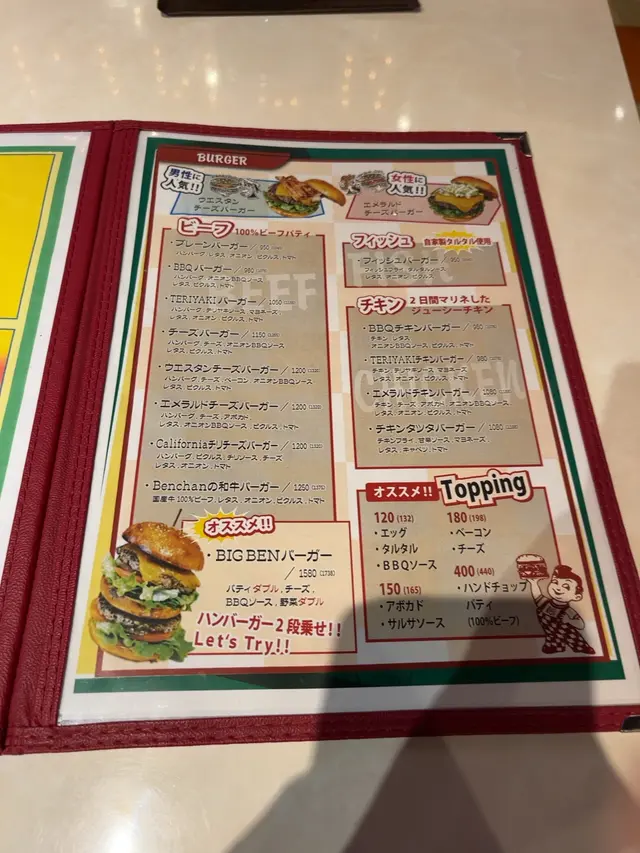 BURGER
男性に
人気!!
ウエスタン
チーズバーガー
女性に
人気!!
エメラルド
チーズバーガー
ビーフ 100%ビーフパティ
・プレーンバーガー / 950
ハンバーグ, レタス, オニオン, ピクルス, トマト
・BBQバーガー / 980
ハンバーグ, オニオンBBQソース
レタス, ピクルス, トマト
・TERIYAKIバーガー / 1050
ハンバーグ, テリヤキソース, マヨネーズ
レタス, オニオン, ピクルス, トマト
・チーズバーガー / 1150
ハンバーグ, チーズ, オニオンBBQソース
レタス, ピクルス, トマト
・ウエスタンチーズバーガー / 1200 (1320)
ハンバーグ, チーズ, ベーコン, オニオンBBQソース
レタス, ピクルス, トマト
・エメラルドチーズバーガー / 1200 (1320)
ハンバーグ, チーズ, アボカド
レタス, オニオンBBQソース, ピクルス, トマト
・Californiaチリチーズバーガー / 1200 (1320)
ハンバーグ, ピクルス, チリソース, チーズ
レタス, オニオン, トマト
・Benchanの和牛バーガー / 1250 (1375)
国産牛100%ビーフ, レタス, オニオン, ピクルス, トマト
オススメ!!
・BIG BENバーガー
/ 1580 (1738)
パティダブル, チーズ,
BBQソース, 野菜ダブル
ハンバーガー2段乗せ!!
Let's Try!!
フィッシュ 自家製タルタル使用
・フィッシュバーガー / 950
フィッシュフライ, タルタルソース
レタス, ピクルス, トマト
チキン 2日間マリネした
ジューシーチキン
・BBQチキンバーガー / 980
チキン, レタス
オニオンBBQソース, ピクルス, トマト
・TERIYAKIチキンバーガー / 980
チキン, テリヤキソース, マヨネーズ
レタス, オニオン, ピクルス, トマト
・エメラルドチキンバーガー / 1080
チキン, チーズ, アボカド, オニオンBBQソース
レタス, オニオン, ピクルス, トマト
・チキンタツタバーガー / 1080
チキンフライ, 甘辛ソース, マヨネーズ,
レタス, キャベツ, トマト
BEEF
CHICKEN
オススメ!! Topping
120 (132)
・エッグ
・タルタル
・BBQソース
150 (165)
・アボカド
・サルサソース
180 (198)
・ベーコン
・チーズ
400 (440)
・ハンドチョップ
パティ
(100%ビーフ)